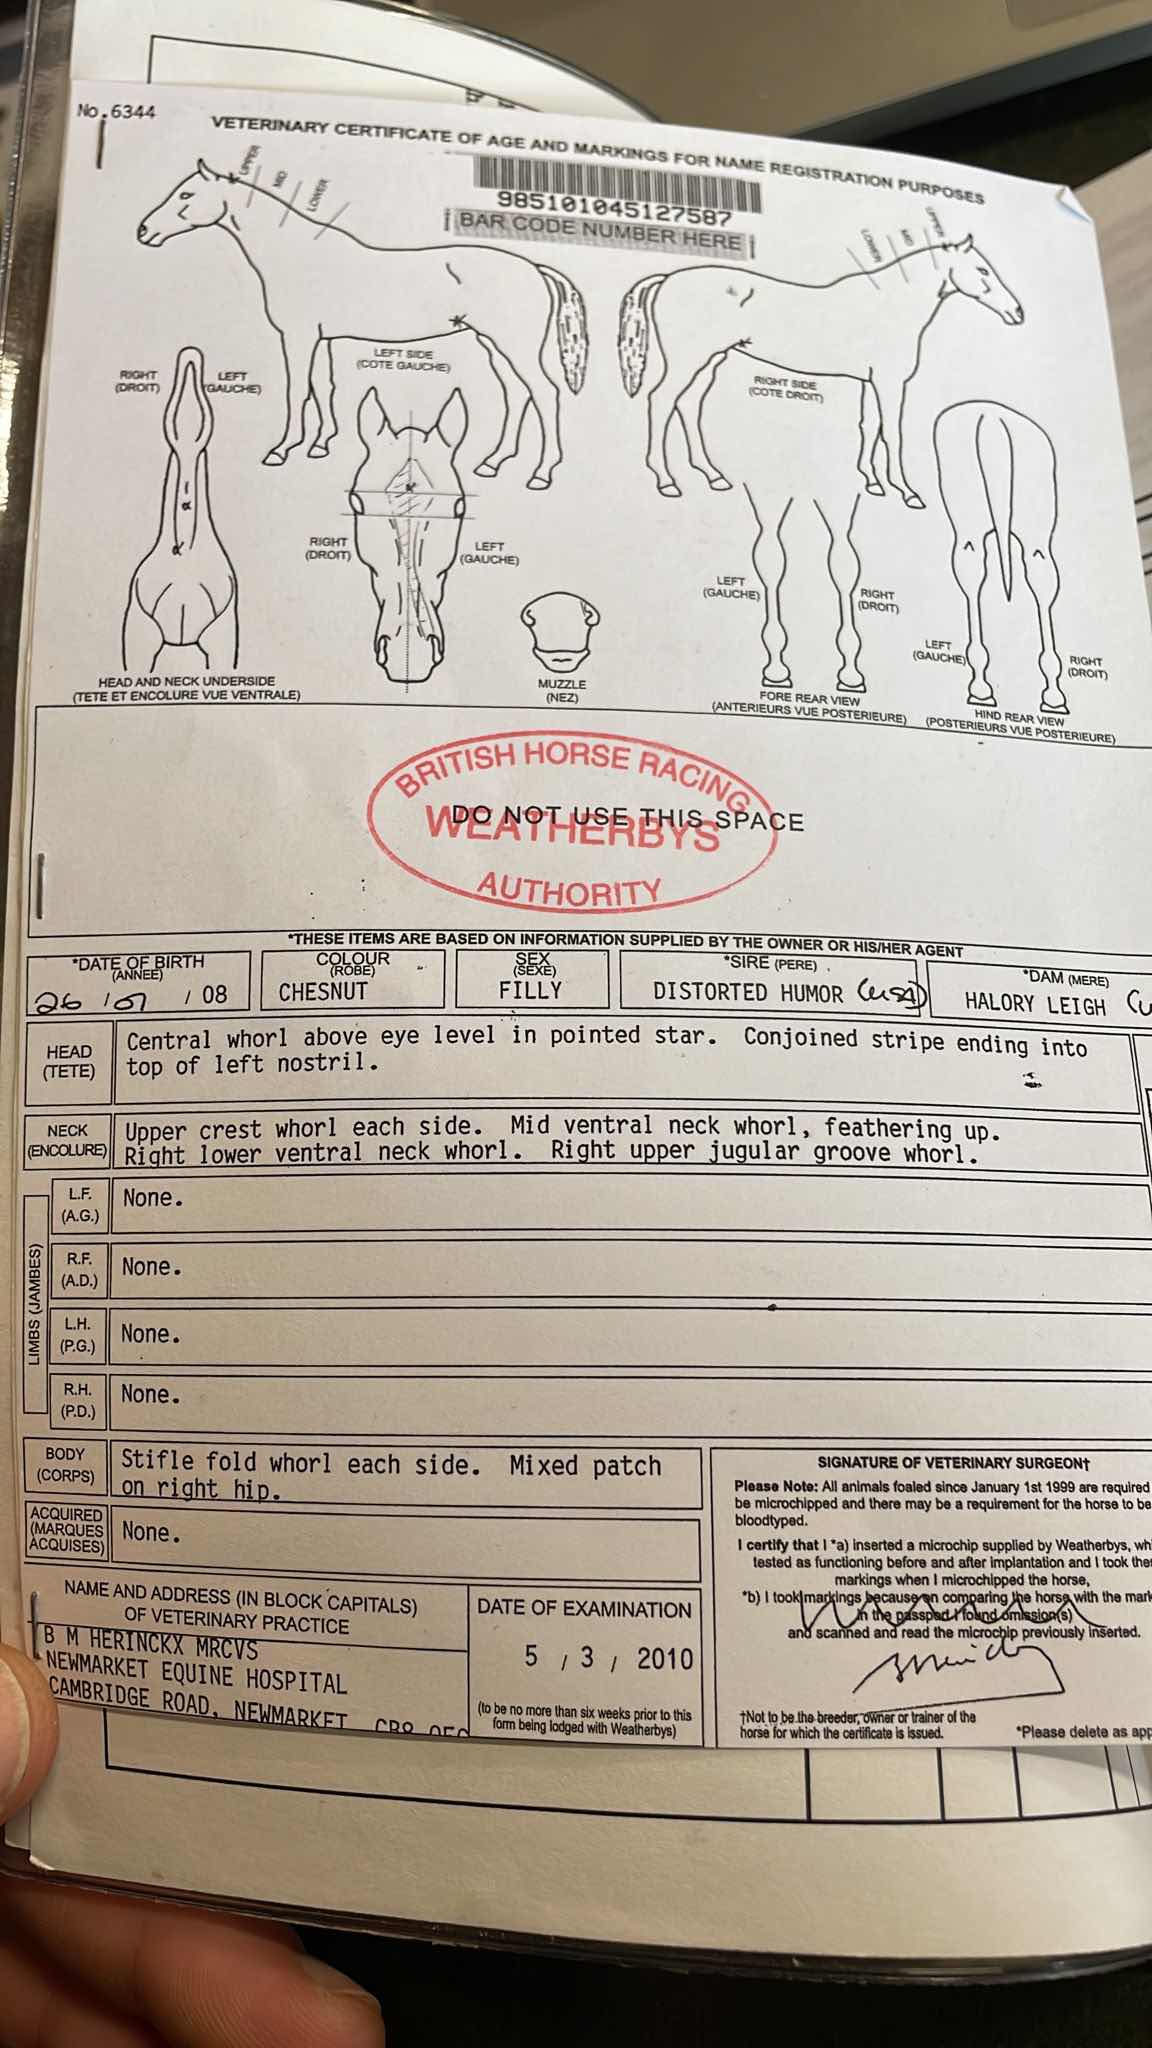 No.6344
VETERINARY CERTIFICATE OF AGE AND MARKINGS FOR NAME REGISTRATION PURPOSES
985101045127587
BAR CODE NUMBER HERE
UPPER
MID
LOWER
LOWER
MID
UPPER
LEFT SIDE
(COTE GAUCHE)
RIGHT SIDE
(COTE DROIT)
RIGHT
(DROIT)
LEFT
(GAUCHE)
RIGHT
(DROIT)
LEFT
(GAUCHE)
LEFT
(GAUCHE)
RIGHT
(DROIT)
LEFT
(GAUCHE)
RIGHT
(DROIT)
HEAD AND NECK UNDERSIDE
(TETE ET ENCOLURE VUE VENTRALE)
MUZZLE
(NEZ)
FORE REAR VIEW
(ANTERIEURS VUE POSTERIEURE)
HIND REAR VIEW
(POSTERIEURS VUE POSTERIEURE)
BRITISH HORSE RACING
DO NOT USE THIS SPACE
WEATHERBYS
AUTHORITY
*THESE ITEMS ARE BASED ON INFORMATION SUPPLIED BY THE OWNER OR HIS/HER AGENT
*DATE OF BIRTH
(ANNEE)
26 / 01 / 08
COLOUR
(ROBE)
CHESNUT
SEX
(SEXE)
FILLY
*SIRE (PERE)
DISTORTED HUMOR (USA)
*DAM (MERE)
HALORY LEIGH (U
HEAD
(TETE)
Central whorl above eye level in pointed star. Conjoined stripe ending into
top of left nostril.
NECK
(ENCOLURE)
Upper crest whorl each side. Mid ventral neck whorl, feathering up.
Right lower ventral neck whorl. Right upper jugular groove whorl.
LIMBS (JAMBES)
L.F.
(A.G.)
None.
R.F.
(A.D.)
None.
L.H.
(P.G.)
None.
R.H.
(P.D.)
None.
BODY
(CORPS)
Stifle fold whorl each side. Mixed patch
on right hip.
ACQUIRED
(MARQUES
ACQUISES)
None.
NAME AND ADDRESS (IN BLOCK CAPITALS)
OF VETERINARY PRACTICE
B M HERINCKX MRCVS
NEWMARKET EQUINE HOSPITAL
CAMBRIDGE ROAD, NEWMARKET
DATE OF EXAMINATION
5 / 3 / 2010
(to be no more than six weeks prior to this
form being lodged with Weatherbys)
SIGNATURE OF VETERINARY SURGEON†
Please Note: All animals foaled since January 1st 1999 are required
be microchipped and there may be a requirement for the horse to be
bloodtyped.
I certify that I *a) inserted a microchip supplied by Weatherbys, wh
tested as functioning before and after implantation and I took the
markings when I microchipped the horse,
*b) I took markings because on comparing the horse with the mark
in the passport I found omission(s)
and scanned and read the microchip previously inserted.
†Not to be the breeder, owner or trainer of the
horse for which the certificate is issued.
*Please delete as app